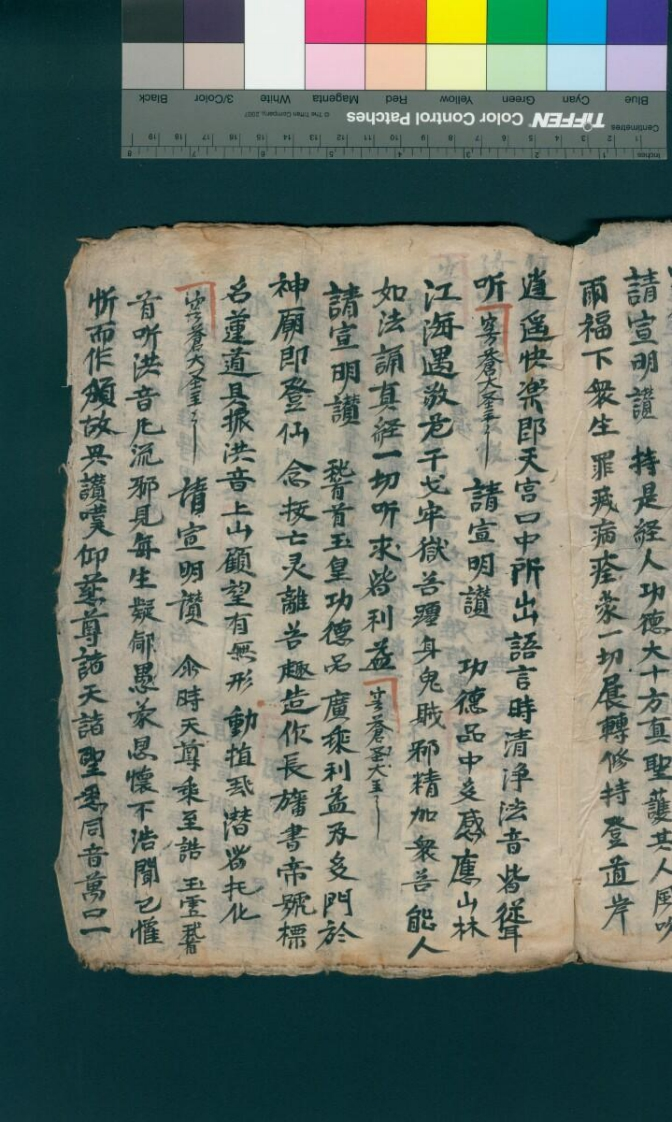 請宣明讃 持是経人功德大十方真聖護其人
爾福下衆生罪滅病痊蒙一切展轉修持登道岸
逍遥快楽即天宮口中所出語言時清浄法音皆從耳
听 穹蒼大圣主 請宣明讃 功德品中多感應山林
江海遇敵危干戈牢獄苦躔身鬼賊邪精加衆善能人
如法誦真経一切所求皆利益 穹蒼圣大主
請宣明讃 稽首玉皇功德品廣乘利益及多門於
神廟即登仙 念接亡灵離苦趣造作長旛書帝號標
名蓮道具振洪音上山顧望有無形 動植飛潜皆托化
穹蒼大圣主 請宣明讃 尒時天尊乘至誥玉霄
首听洪音凡流邪見每生疑鄙愚蒙恩懷不浩聞已惟
忻而作頌故興讃嘆仰慈尊諸天諸聖悉同音萬口一
Inches
Centimetres
TIFFEN Color Control Patches
© The Tiffen Company, 2007
Blue
Cyan
Green
Yellow
Red
Magenta
White
3/Color
Black